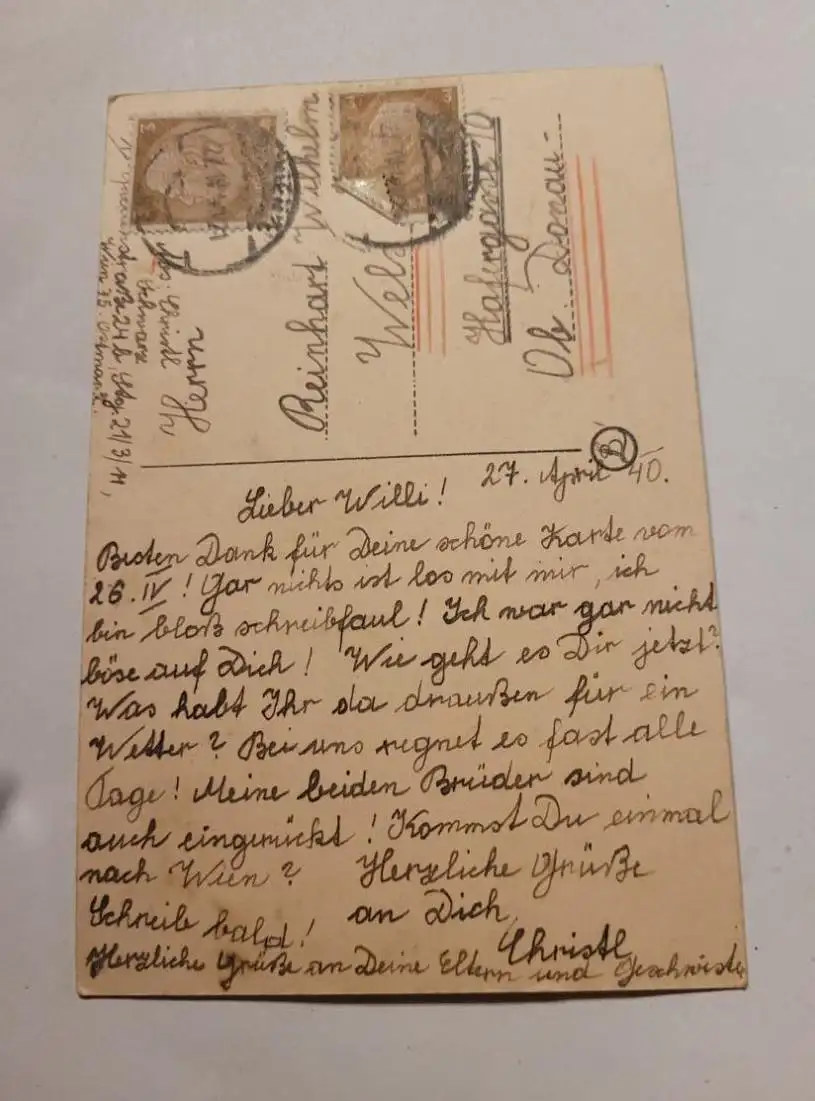 3
3
Herrn
Reinhart Wilhelm
Wels
Hafergasse 10
Ob. Donau
Schwarz
24b, Stg. 21/3/11,
B
27. April 40.
Lieber Willi!
Besten Dank für Deine schöne Karte vom
26. IV! Gar nichts ist los mit mir, ich
bin bloß schreibfaul! Ich war gar nicht
böse auf Dich! Wie geht es Dir jetzt?
Was habt Ihr da draußen für ein
Wetter? Bei uns regnet es fast alle
Tage! Meine beiden Brüder sind
auch eingerückt! Kommst Du einmal
nach Wien? Herzliche Grüße
Schreib bald! an Dich,
Christl
Herzliche Grüße an Deine Eltern und Geschwister